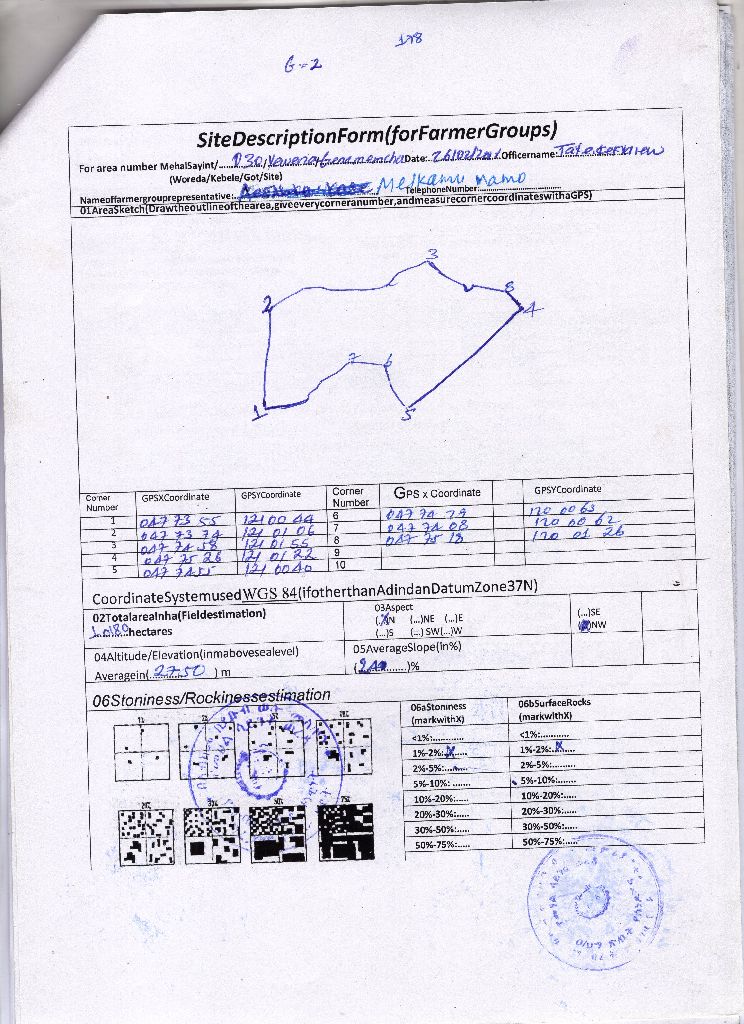 178
G=2
SiteDescriptionForm(forFarmerGroups)
For area number MehalSayint/......D30/ Date:. 26/02/2011 Officername:
(Woreda/Kebele/Got/Site)
Nameoffarmergrouprepresentative:.. Melkamu mamo TelephoneNumber:..............................
01AreaSketch(Drawtheoutlineofthearea,giveeverycorneranumber,andmeasurecornercoordinateswithaGPS)
3
2
8
4
7
6
1
5
Corner Number GPSXCoordinate GPSYCoordinate Corner Number GPS x Coordinate GPSYCoordinate
1 047 73 55 121 00 44 6 047 74 79 120 00 63
2 047 73 74 121 01 06 7 047 74 08 120 00 62
3 047 74 58 121 01 55 8 047 75 18 120 01 26
4 047 75 26 121 01 22 9
5 047 7455 121 0040 10
CoordinateSystemusedWGS 84(ifotherthanAdindanDatumZone37N)
02TotalareaInha(Fieldestimation)
hectares
03Aspect
(X)N (...)NE (...)E
(...)S (...) SW(...)W
(...)SE
NW
04Altitude/Elevation(inmabovesealevel)
Averagein(.2750 ) m
05AverageSlope(in%)
)%
06Stoniness/Rockinessestimation
1% 2% 5% 10%
20% 30% 50% 75%
06aStoniness (markwithX) 06bSurfaceRocks (markwithX)
<1%:........... <1%:.........
1%-2%:.X.... 1%-2%:..X....
2%-5%:........ 2%-5%:.........
5%-10%: ....... 5%-10%:.......
10%-20%:..... 10%-20%:.....
20%-30%:..... 20%-30%:.....
30%-50%:..... 30%-50%:.....
50%-75%:..... 50%-75%:.....